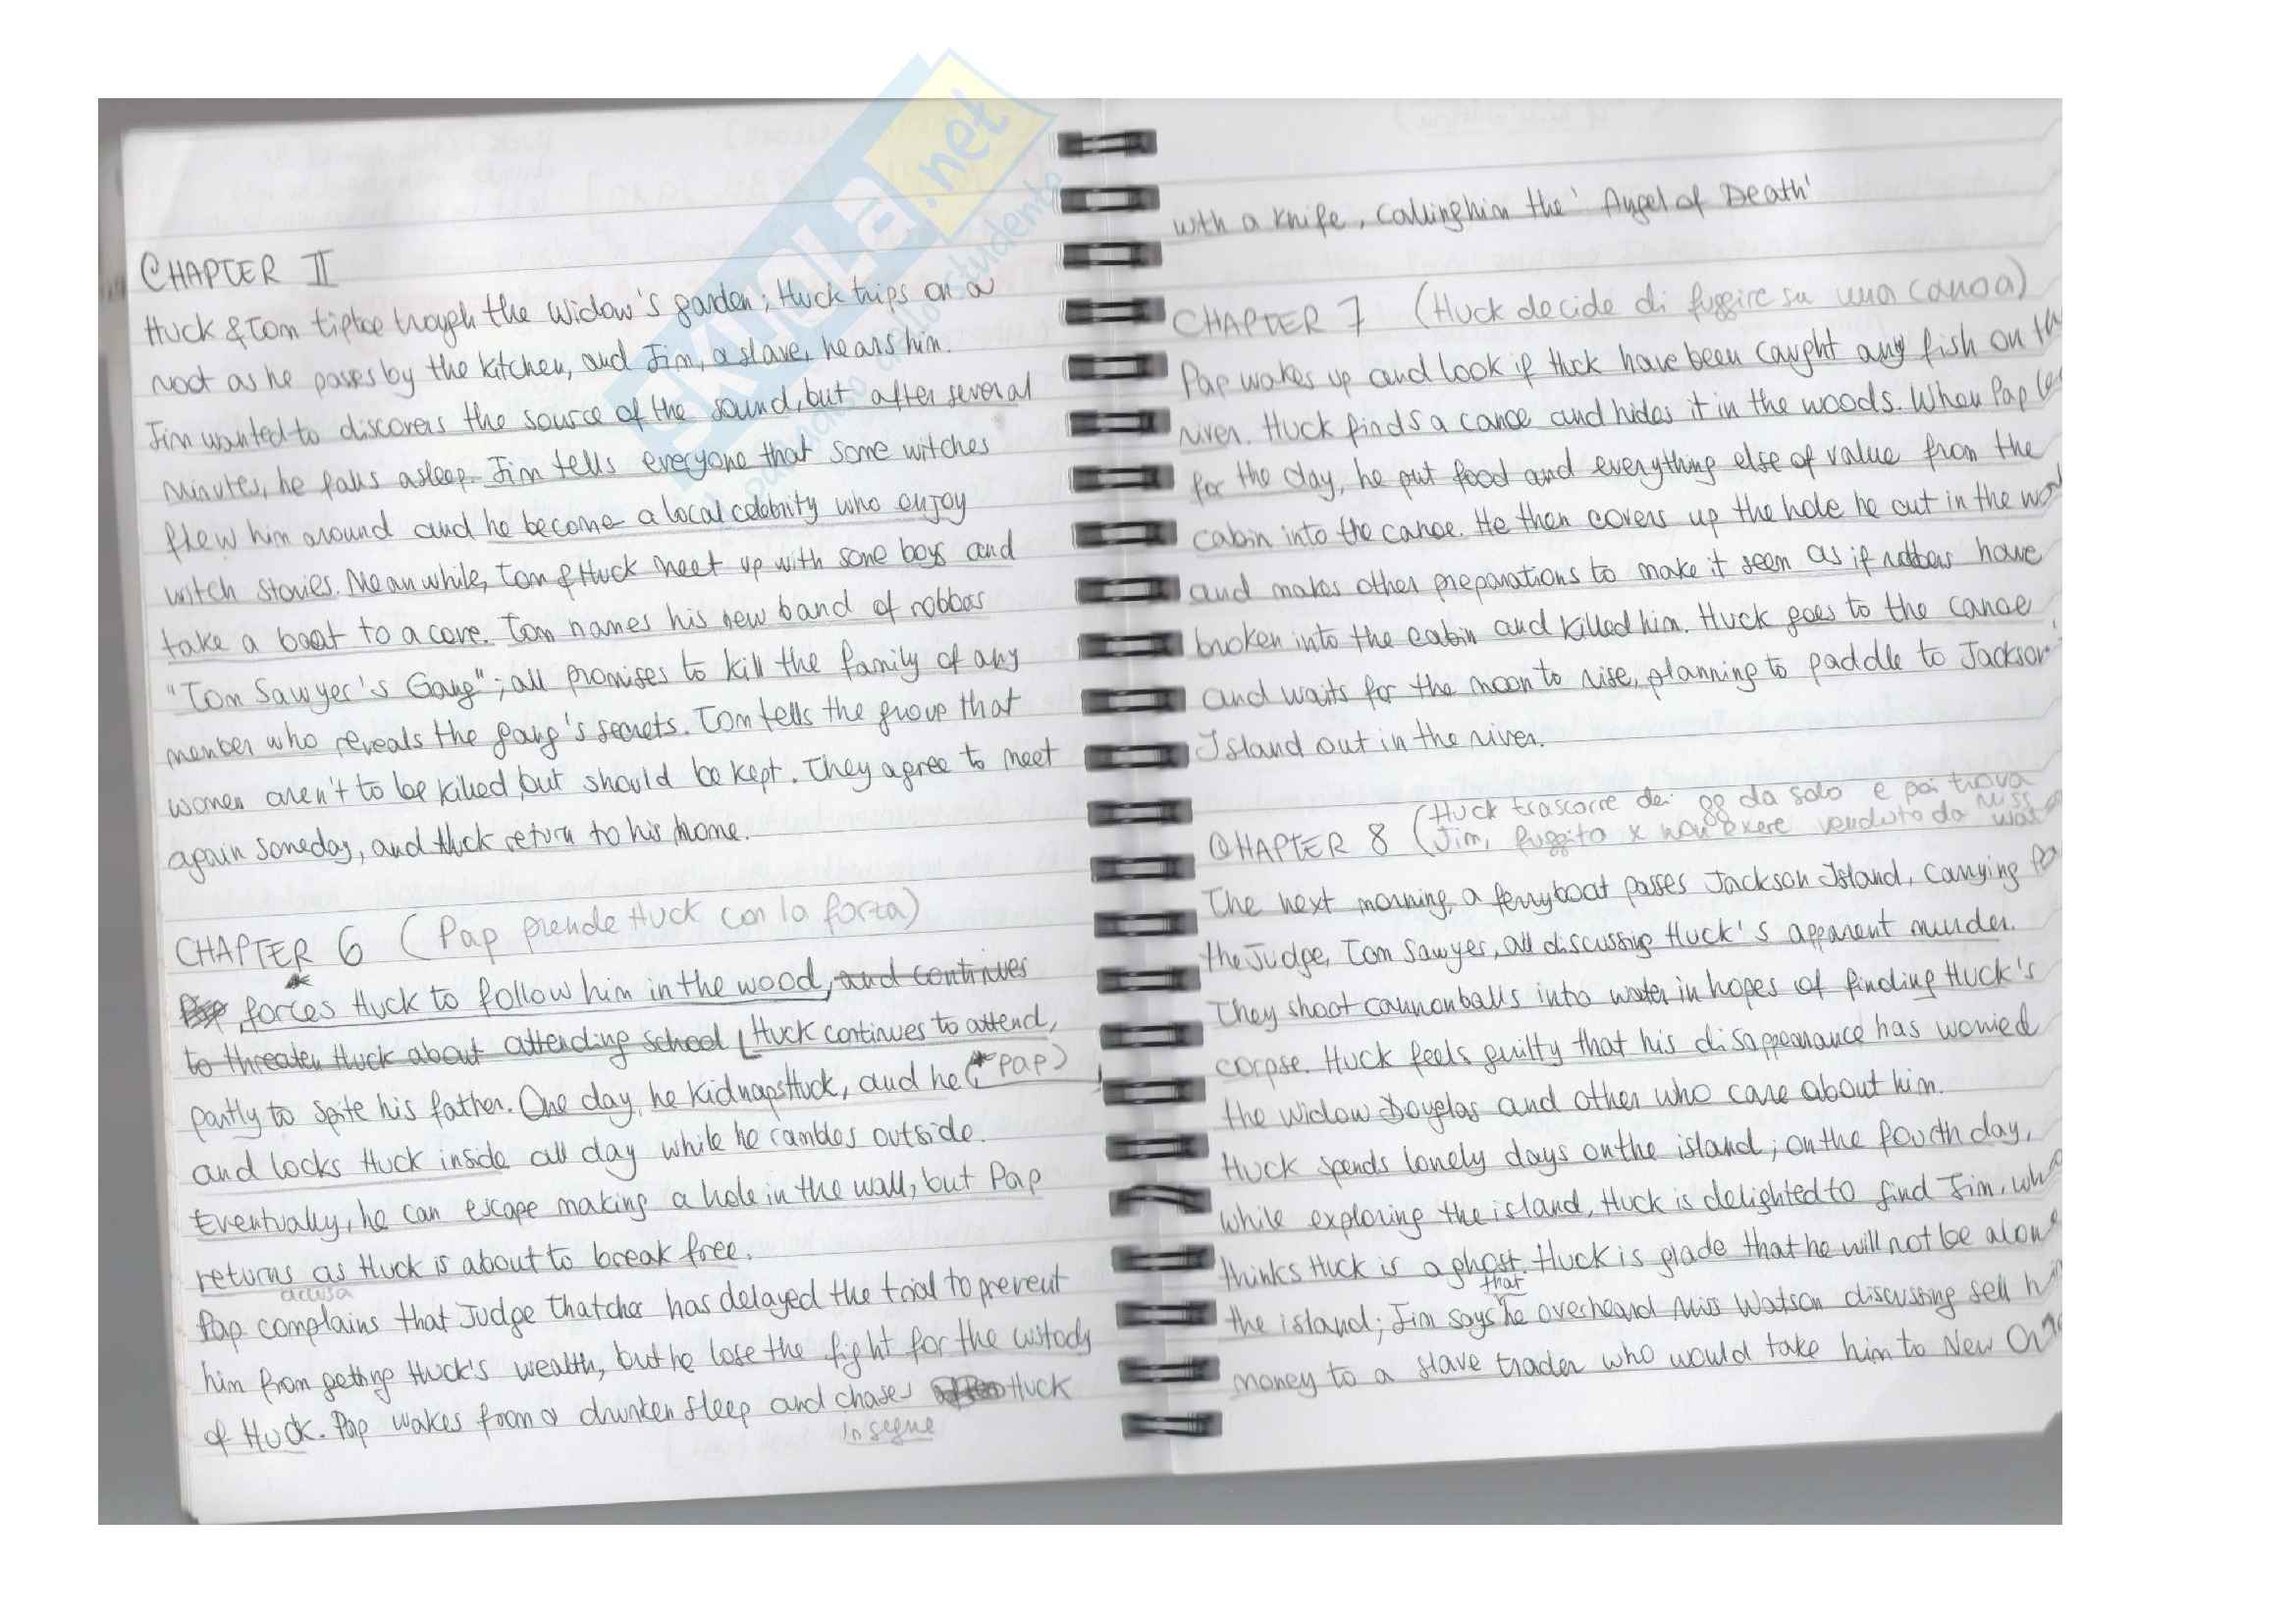 CHAPTER II
Huck & Tom tiptoe trough the Widow's garden; Huck trips on a
root as he passes by the kitchen, and Jim, a slave, hears him.
Jim wanted to discovers the source of the sound, but after several
minutes, he falls asleep. Jim tells everyone that some witches
flew him around and he become a local celebrity who enjoy
witch stories. Meanwhile, Tom & Huck meet up with some boys and
take a boat to a cave. Tom names his new band of robbers
"Tom Sawyer's Gang"; all promises to kill the family of any
member who reveals the gang's secrets. Tom tells the group that
women aren't to be killed, but should be kept. They agree to meet
again someday, and Huck return to his home.
CHAPTER 6 (Pap prende Huck con la forza)
forces Huck to follow him in the wood, and continues
to threaten Huck about attending school Huck continues to attend,
partly to spite his father. One day, he kidnaps Huck, and he (* Pap)
and locks Huck inside all day while he rambles outside.
Eventually, he can escape making a hole in the wall, but Pap
returns as Huck is about to break free.
accusa
Pap complains that Judge Thatcher has delayed the trial to prevent
him from getting Huck's wealth, but he lose the fight for the custody
of Huck. Pap wakes from a drunken sleep and chases Huck
insegue
with a knife, calling him the 'Angel of Death'
CHAPTER 7 (Huck decide di fuggire su una canoa)
Pap wakes up and look if Huck have been caught any fish on th
river. Huck finds a canoe and hides it in the woods. When Pap
for the day, he put food and everything else of value from the
cabin into the canoe. He then covers up the hole he cut in the
and makes other preparations to make it seem as if robbers have
broken into the cabin and killed him. Huck goes to the canoe
and waits for the moon to rise, planning to paddle to Jackson
Island out in the river.
(Huck trascorre dei gg da solo e poi trova
CHAPTER 8 (Jim, fuggito x non essere venduto da Miss Wat
The next morning, a ferryboat passes Jackson Island, carrying
the Judge, Tom Sawyer, all discussing Huck's apparent murder.
They shoot cannonballs into water in hopes of finding Huck's
corpse. Huck feels guilty that his disappearance has worried
the Widow Douglas and other who care about him.
Huck spends lonely days on the island; on the fourth day,
while exploring the island, Huck is delighted to find Jim, who
thinks Huck is a ghost. Huck is glade that he will not be alone
the island; Jim says that he overheard Miss Watson discussing sell
money to a slave trader who would take him to New
SKUOLA.net